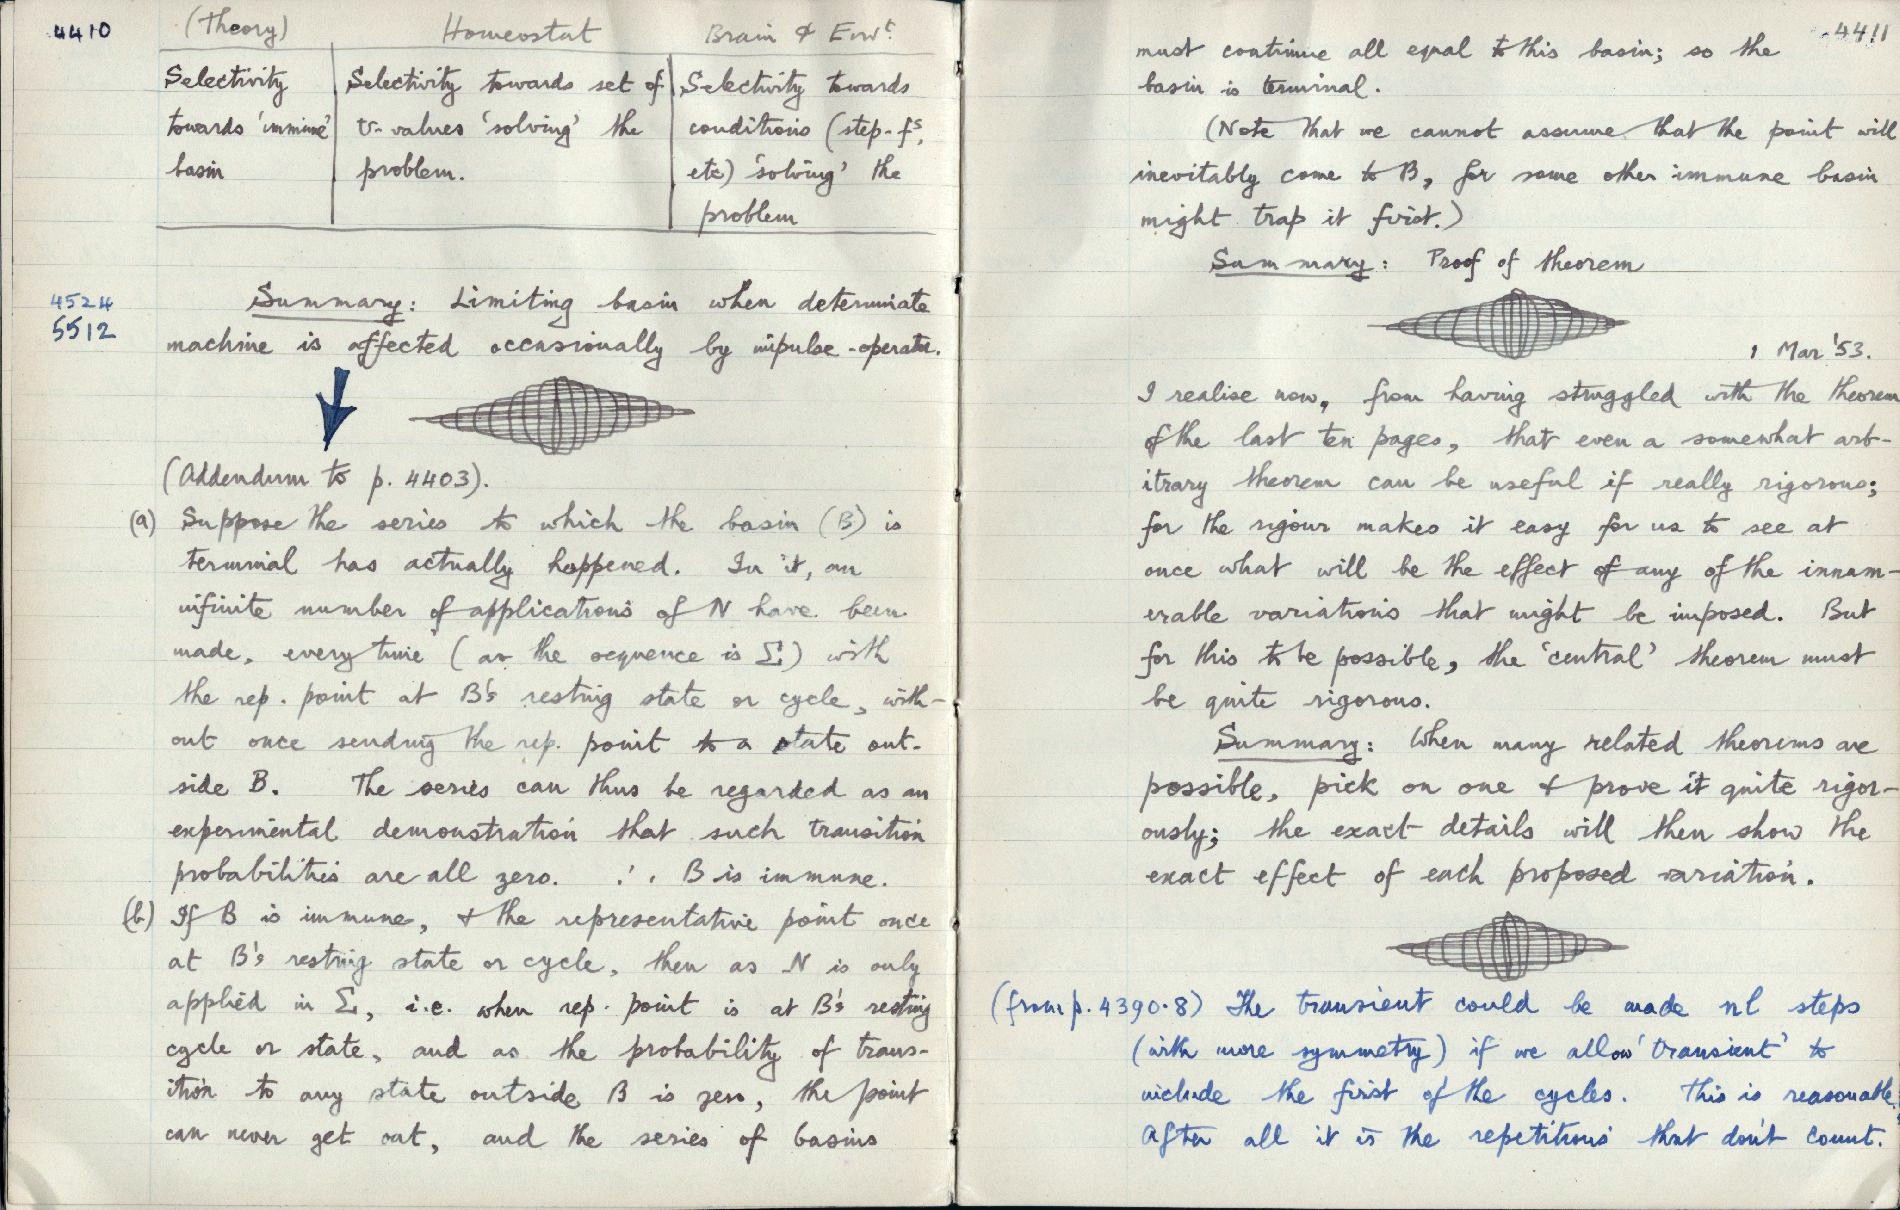 4410
(Theory) Homeostat Brain & Envt.
Selectivity Selectivity towards set of Selectivity towards
towards 'immune' v-values 'solving' the conditions (step-fs,
basin problem. etc) 'solving' the
problem
4524
5512
Summary: Limiting basin when determinate
machine is affected occasionally by impulse-operator.
(Addendum to p. 4403).
(a) Suppose the series to which the basin (B) is
terminal has actually happened. In it, an
infinite number of applications of N have been
made, every time (as the sequence is Σ) with
the rep. point at B's resting state or cycle, with-
out once sending the rep. point to a state out-
side B. The series can thus be regarded as an
experimental demonstration that such transition
probabilities are all zero. ∴ B is immune.
(b) If B is immune, & the representative point once
at B's resting state or cycle, then as N is only
applied in Σ, i.e. when rep. point is at B's resting
cycle or state, and as the probability of trans-
ition to any state outside B is zero, the point
can never get out, and the series of basins
4411
must continue all equal to this basin; so the
basin is terminal.
(Note that we cannot assume that the point will
inevitably come to B, for some other immune basin
might trap it first.)
Summary: Proof of theorem
1 Mar '53.
I realise now, from having struggled with the theorem
of the last ten pages, that even a somewhat arb-
itrary theorem can be useful if really rigorous;
for the rigour makes it easy for us to see at
once what will be the effect of any of the innum-
erable variations that might be imposed. But
for this to be possible, the 'central' theorem must
be quite rigorous.
Summary: When many related theorems are
possible, pick on one & prove it quite rigor-
ously; the exact details will then show the
exact effect of each proposed variation.
(from p. 4390.8) The transient could be made nl steps
(with more symmetry) if we allow 'transient' to
include the first of the cycles. This is reasonable.
After all it is the repetitions that don't count.